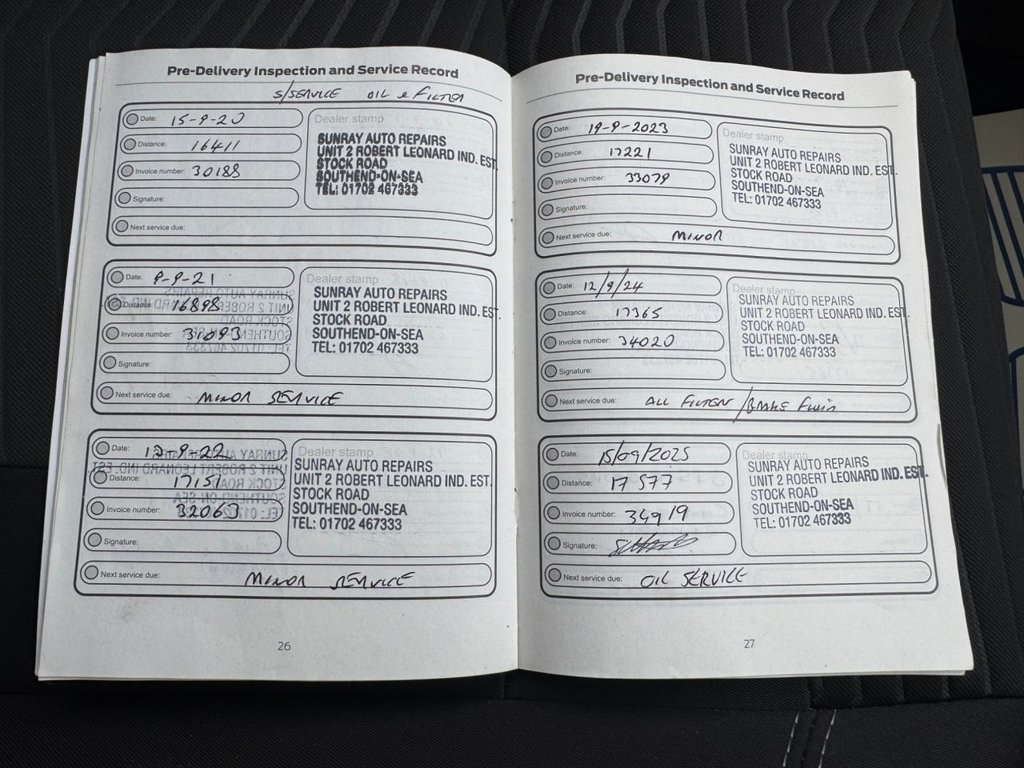 Pre-Delivery Inspection and Service Record
S/SERVICE OIL & FILTER
Date: 15-9-20
Distance: 16411
Invoice number: 30188
Signature:
Next service due:
Dealer stamp
SUNRAY AUTO REPAIRS
UNIT 2 ROBERT LEONARD IND. EST.
STOCK ROAD
SOUTHEND-ON-SEA
TEL: 01702 467333
Date: 9-9-21
Distance: 16898
Invoice number: 31093
Signature:
Next service due: MINOR SERVICE
Dealer stamp
SUNRAY AUTO REPAIRS
UNIT 2 ROBERT LEONARD IND. EST.
STOCK ROAD
SOUTHEND-ON-SEA
TEL: 01702 467333
Date: 12-9-22
Distance: 17151
Invoice number: 32063
Signature:
Next service due: MINOR SERVICE
Dealer stamp
SUNRAY AUTO REPAIRS
UNIT 2 ROBERT LEONARD IND. EST.
STOCK ROAD
SOUTHEND-ON-SEA
TEL: 01702 467333
26
Pre-Delivery Inspection and Service Record
Date: 19-9-2023
Distance: 17221
Invoice number: 33079
Signature:
Next service due: MINOR
Dealer stamp
SUNRAY AUTO REPAIRS
UNIT 2 ROBERT LEONARD IND. EST.
STOCK ROAD
SOUTHEND-ON-SEA
TEL: 01702 467333
Date: 12/9/24
Distance: 17365
Invoice number: 34020
Signature:
Next service due: ALL FILTER / BRAKE FLUID
Dealer stamp
SUNRAY AUTO REPAIRS
UNIT 2 ROBERT LEONARD IND. EST.
STOCK ROAD
SOUTHEND-ON-SEA
TEL: 01702 467333
Date: 15/09/2025
Distance: 17577
Invoice number: 34919
Signature:
Next service due: OIL SERVICE
Dealer stamp
SUNRAY AUTO REPAIRS
UNIT 2 ROBERT LEONARD IND. EST.
STOCK ROAD
SOUTHEND-ON-SEA
TEL: 01702 467333
27